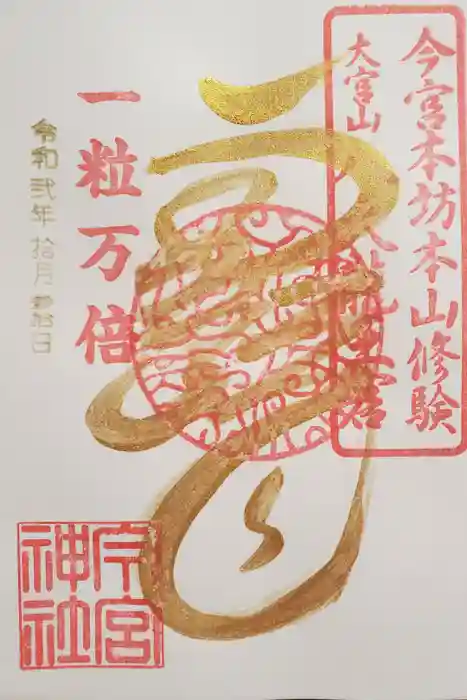 今宮本坊本山修験
大宮山
一粒万倍
令和弐年 拾月 参拾日
今宮
神社